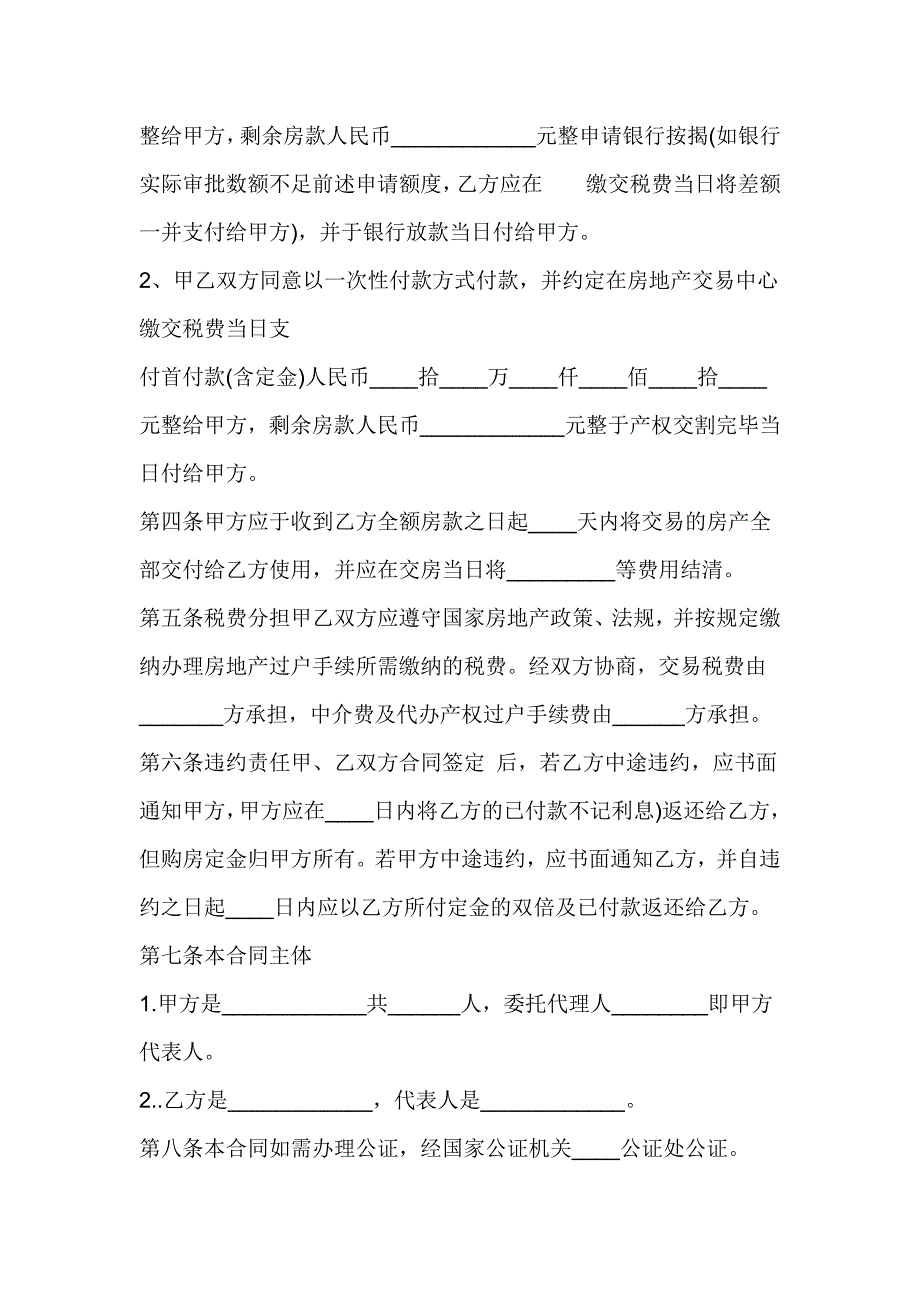 整给甲方，剩余房款人民币____________元整申请银行按揭(如银行
实际审批数额不足前述申请额度，乙方应在　　缴交税费当日将差额
一并支付给甲方)，并于银行放款当日付给甲方。
2、甲乙双方同意以一次性付款方式付款，并约定在房地产交易中心
缴交税费当日支
付首付款(含定金)人民币____拾____万____仟____佰____拾____
元整给甲方，剩余房款人民币____________元整于产权交割完毕当
日付给甲方。
第四条甲方应于收到乙方全额房款之日起____天内将交易的房产全
部交付给乙方使用，并应在交房当日将_________等费用结清。
第五条税费分担甲乙双方应遵守国家房地产政策、法规，并按规定缴
纳办理房地产过户手续所需缴纳的税费。经双方协商，交易税费由
_______方承担，中介费及代办产权过户手续费由______方承担。
第六条违约责任甲、乙双方合同签定 后，若乙方中途违约，应书面
通知甲方，甲方应在____日内将乙方的已付款不记利息)返还给乙方，
但购房定金归甲方所有。若甲方中途违约，应书面通知乙方，并自违
约之日起____日内应以乙方所付定金的双倍及已付款返还给乙方。
第七条本合同主体
1.甲方是____________共______人，委托代理人________即甲方
代表人。
2..乙方是____________，代表人是____________。
第八条本合同如需办理公证，经国家公证机关____公证处公证。